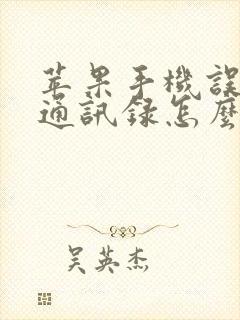 苹果手機誤
通訊録怎麼
吴英杰